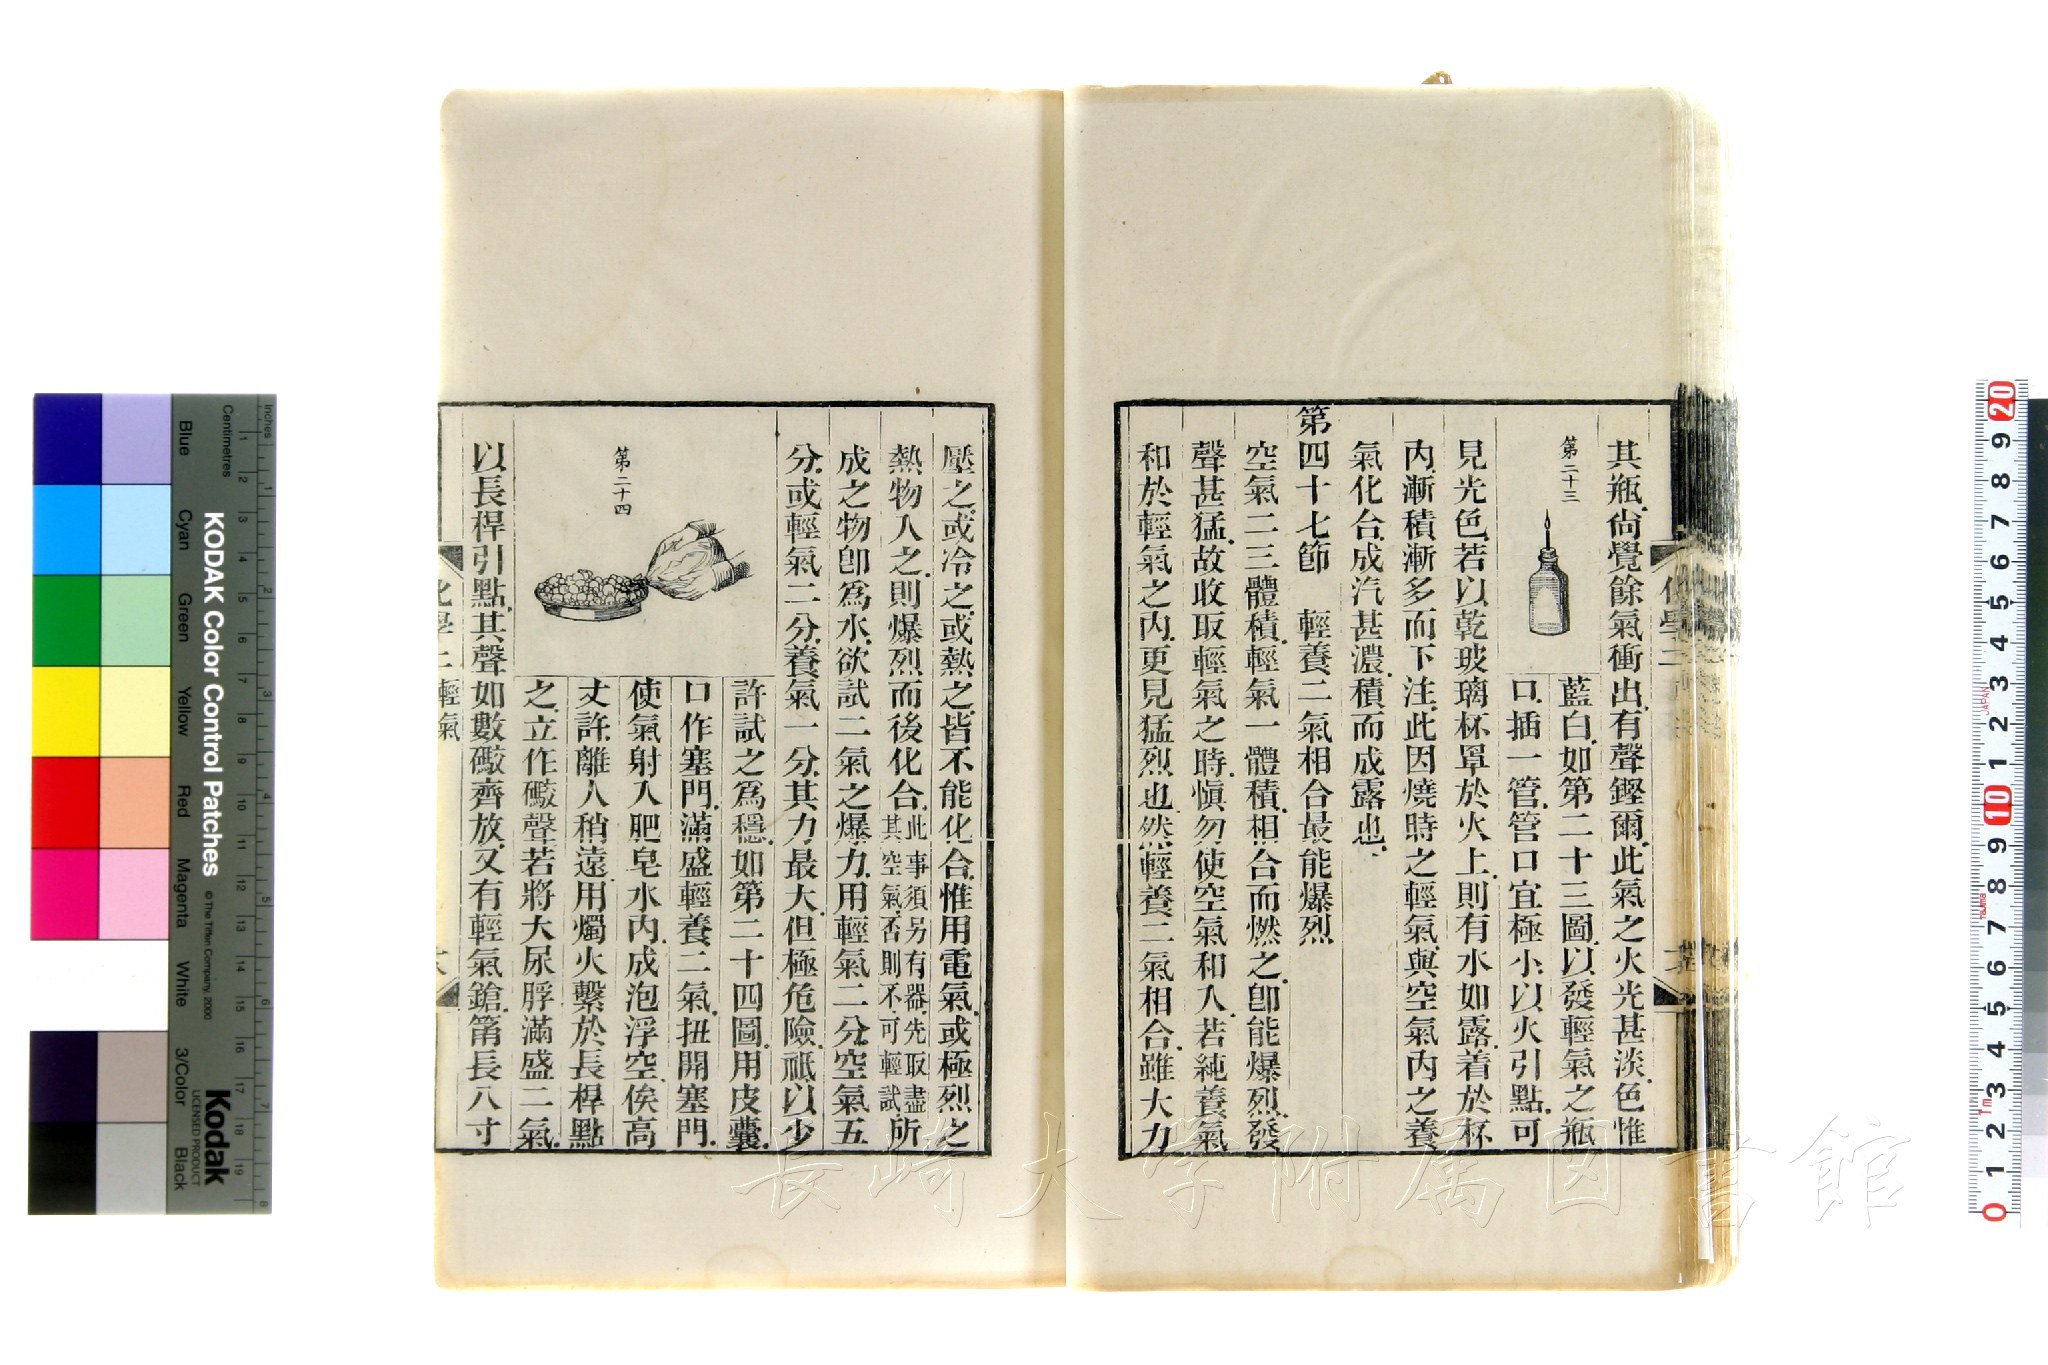 其瓶尙覺餘氣衝出有聲鏗爾此氣之火光甚淡色惟
第二十三
藍白如第二十三圖以發輕氣之瓶
口插一管管口宜極小以火引點可
見光色若以乾玻璃杯罩於火上則有水如露着於杯
內漸積漸多而下注此因燒時之輕氣與空氣內之養
氣化合成汽甚濃積而成露也
第四十七節　輕養二氣相合最能爆烈
空氣二三體積輕氣一體積相合而燃之卽能爆烈發
聲甚猛故收取輕氣之時愼勿使空氣和入若純養氣
和於輕氣之內更見猛烈也然輕養二氣相合雖大力
壓之或冷之或熱之皆不能化合惟用電氣或極烈之
熱物入之則爆烈而後化合此事須另有器先取盡其空氣否則不可輕試所
成之物卽為水欲試二氣之爆力用輕氣二分空氣五
分或輕氣二分養氣一分其力最大但極危險祗以少
第二十四
許試之為穩如第二十四圖用皮囊
口作塞門滿盛輕養二氣扭開塞門
使氣射入肥皂水內成泡浮空俟高
丈許離人稍遠用燭火繫於長桿點
之立作礮聲若將大尿脬滿盛二氣
以長桿引點其聲如數礮齊放又有輕氣鎗筩長八寸
化學二 輕氣
長崎大学附属図書館
KODAK Color Control Patches
© The Tiffen Company, 2000
Kodak
LICENSED PRODUCT
Inches
Centimetres
Blue
Cyan
Green
Yellow
Red
Magenta
White
3/Color
Black
1 2 3 4 5 6 7 8 9 10 11 12 13 14 15 16 17 18 19
1 2 3 4 5 6 7 8
20 9 8 7 6 5 4 3 2 1 10 9 8 7 6 5 4 3 2 1 0
JAPAN